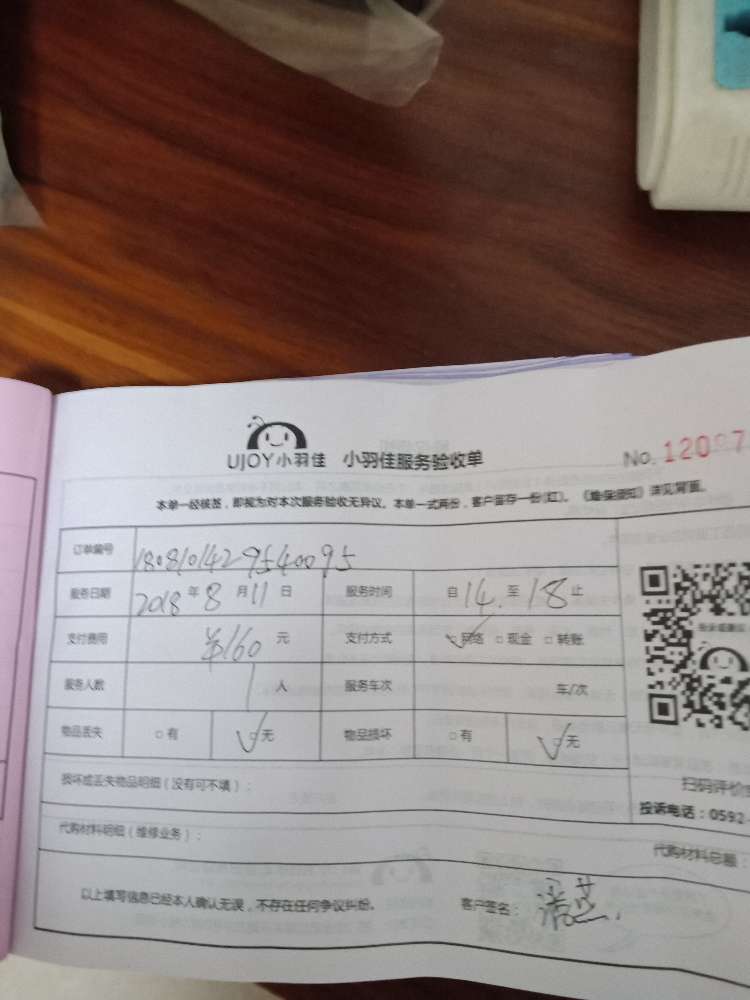 UJOY小羽佳 小羽佳服务验收单
No. 12097
本单一经核签，即视为对本次服务验收无异议。本单一式两份，客户留存一份(红)。《维保须知》详见背面。
订单编号 18081014295540095
服务日期 2018年8月11日 服务时间 自14.至18止
支付费用 ¥160元 支付方式 ☑网络 □现金 □转账
服务人数 1人 服务车次 车/次
物品丢失 □有 ☑无 物品损坏 □有 ☑无
损坏或丢失物品明细（没有可不填）：
扫码评价
投诉电话：0592-
代购材料明细（维修业务）：
代购材料总额：
以上填写信息已经本人确认无误，不存在任何争议纠纷。 客户签名：